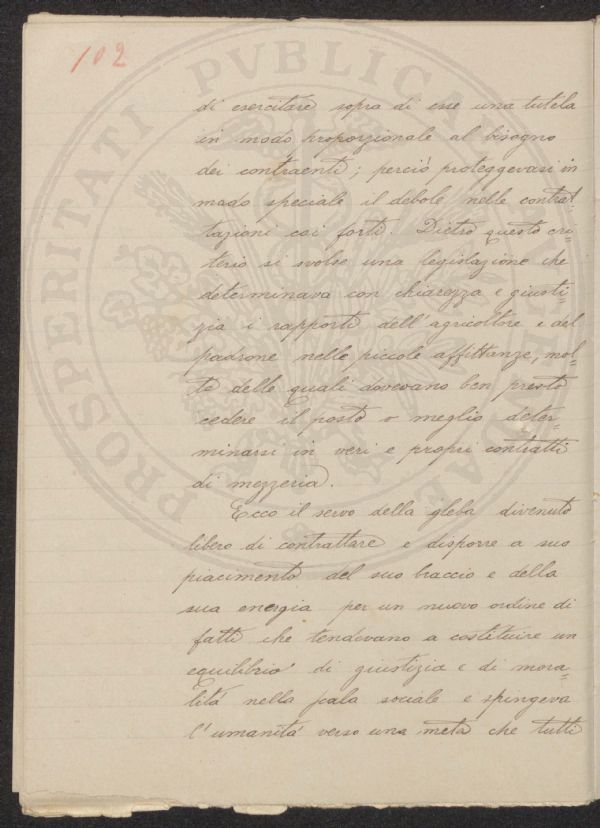 102
di esercitare sopra di esse una tutela
in modo proporzionale al bisogno
dei contraenti; perciò proteggevasi in
modo speciale il debole, nelle contrat
tazioni coi forti. Dietro questo cri=
terio si svolse una legislazione che
determinava con chiarezza e giusti=
zia i rapporti dell'agricoltore e del
padrone nelle piccole affittanze, mol=
te delle quali dovevano ben presto
cedere il posto o meglio deter=
minarsi in veri e propri contratti
di mezzeria.
Ecco il servo della gleba divenuto
libero di contrattare e disporre a suo
piacimento del suo braccio e della
sua energia per un nuovo ordine di
fatti che tendevano a costituire un
equilibrio di giustizia e di mora=
lità nella scala sociale e spingeva
l'umanità verso una meta che tutti
PROSPERITATI PVBLICAE